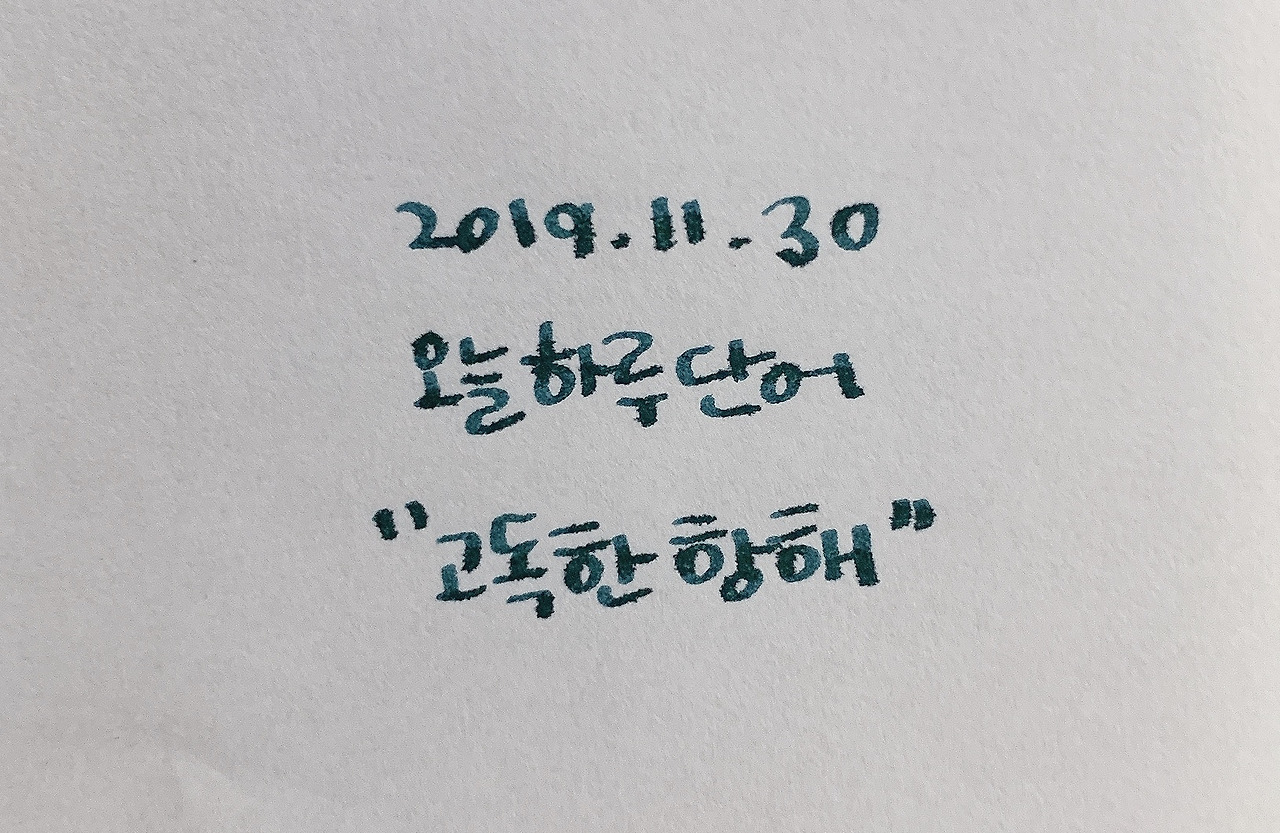 2019.11.30
오늘하루단어
"고독한 항해"